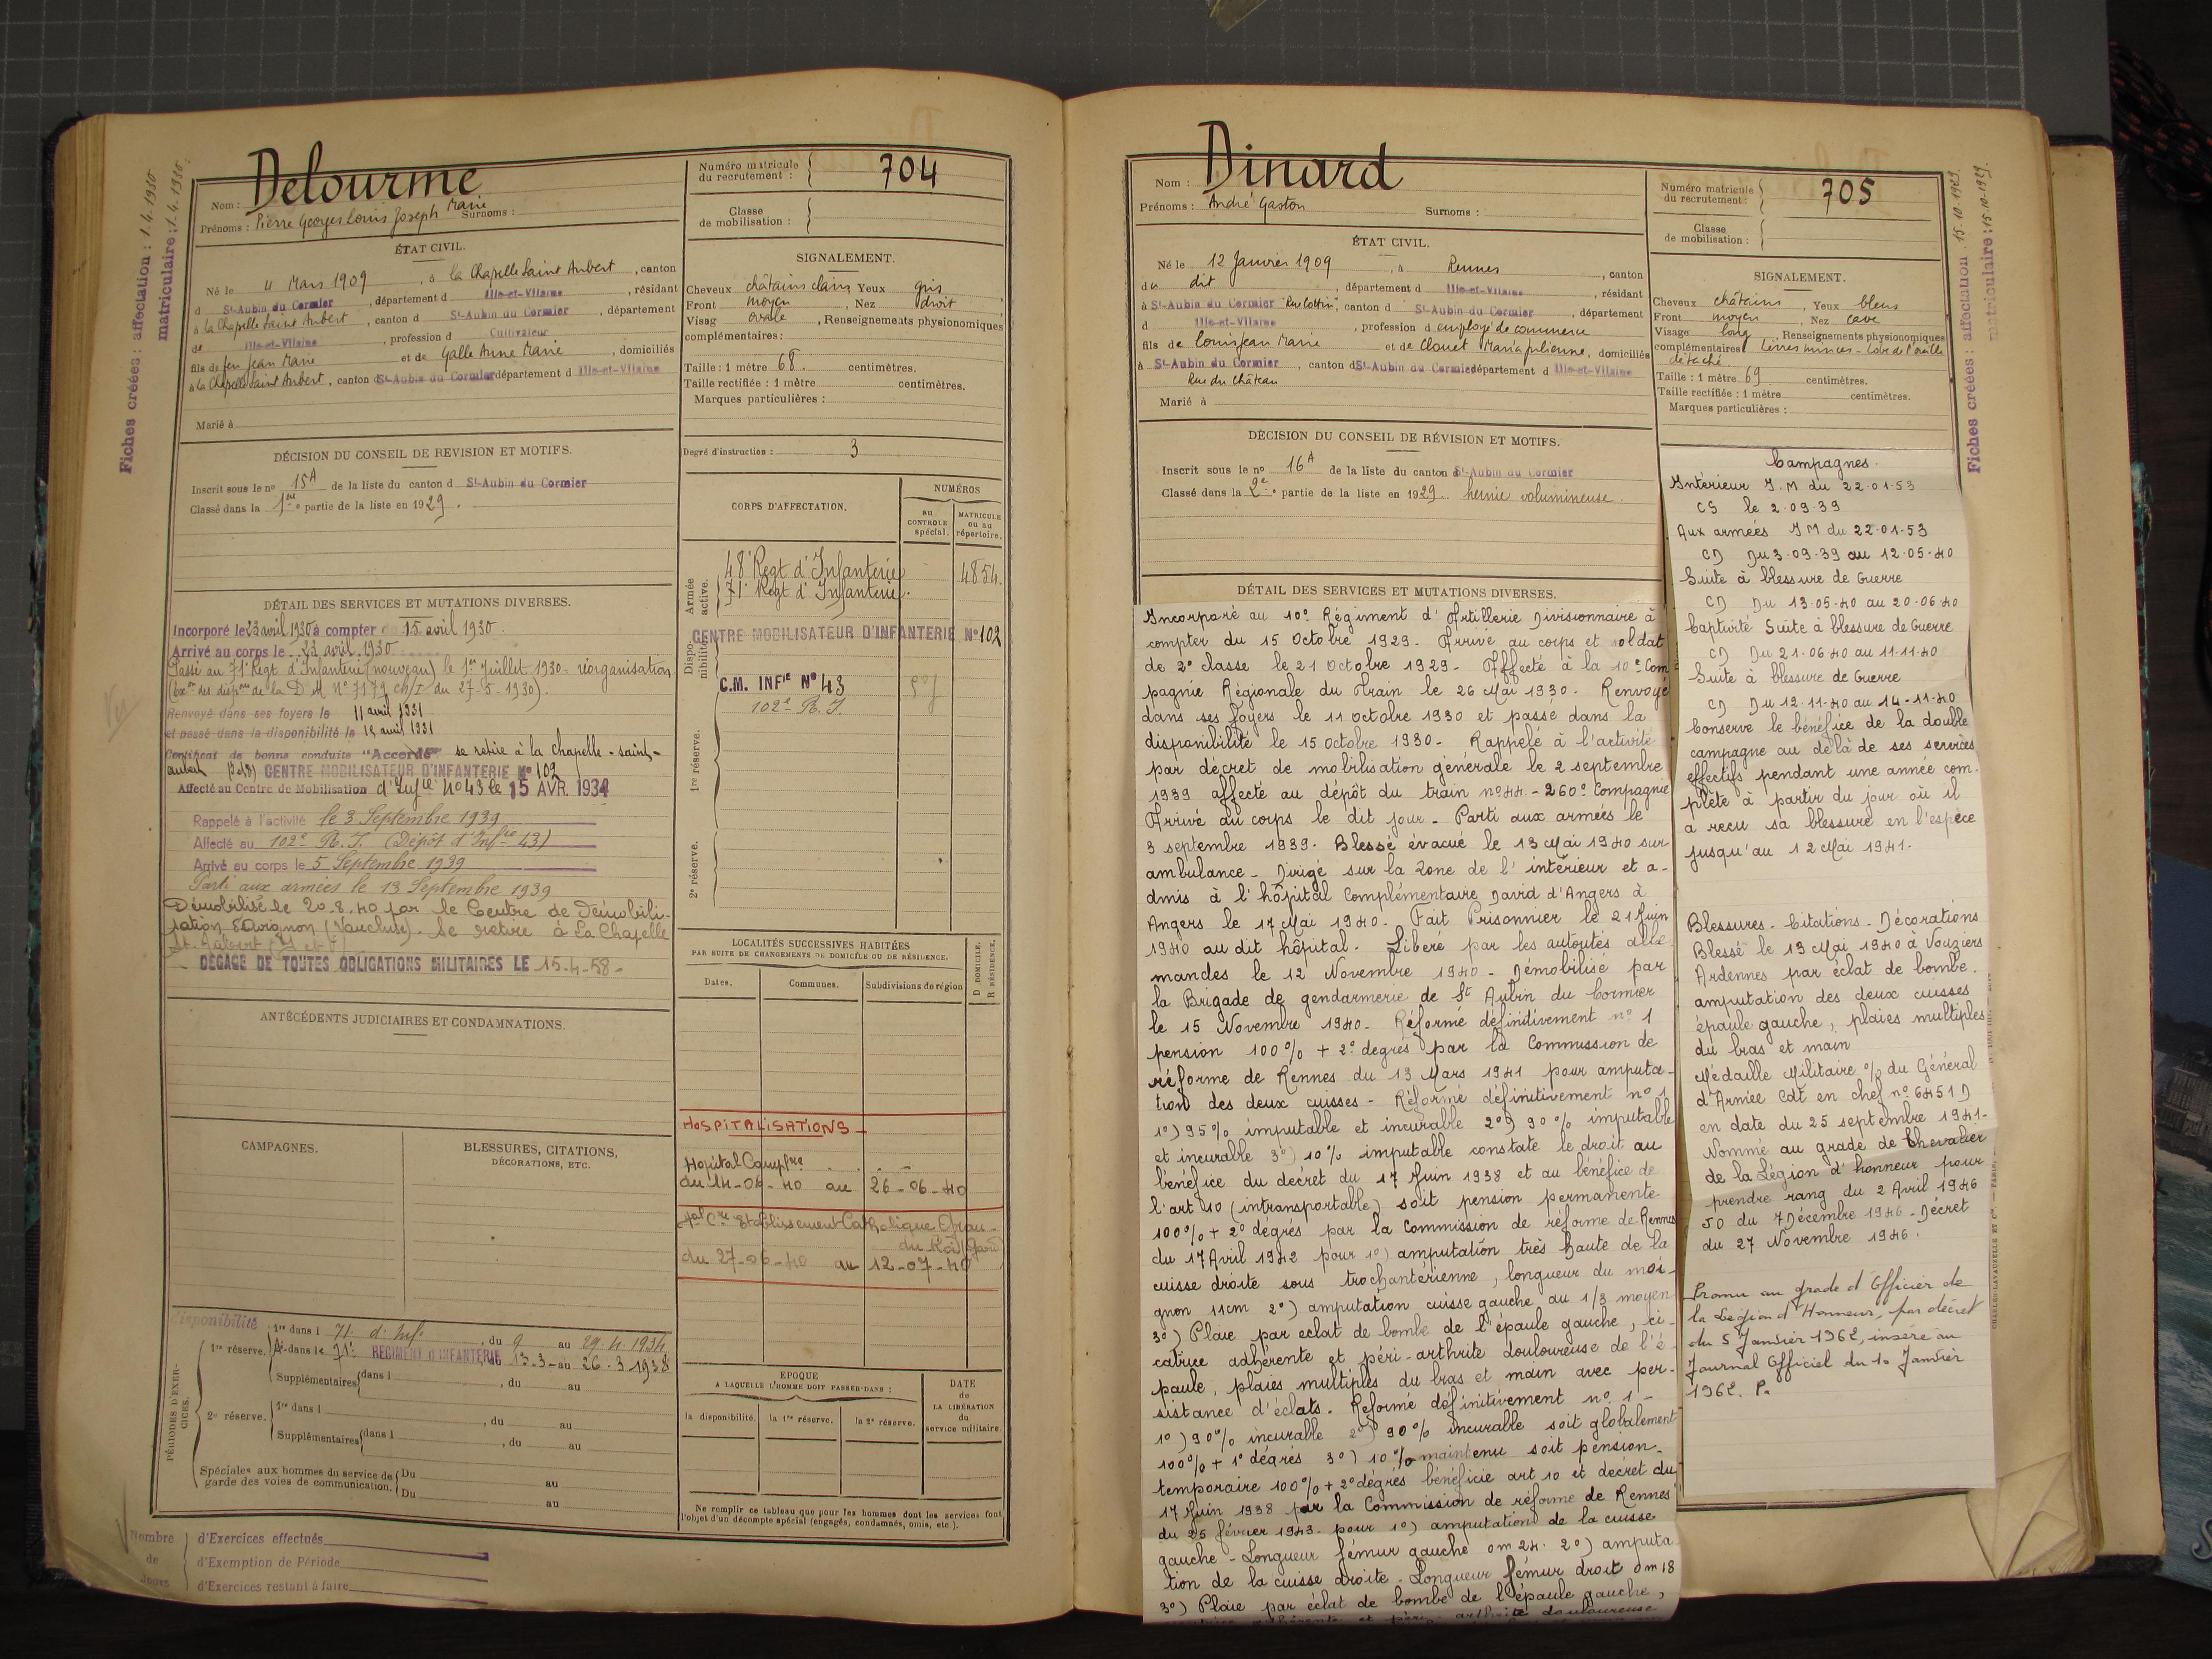 Fiches créées : affectation : 1.4.1930
matriculaire : 1.4.1930.
Nom : Delourme
Prénoms : Pierre Georges Louis Joseph Marie Surnoms :
Numéro matricule du recrutement : 704
Classe de mobilisation :
ÉTAT CIVIL.
Né le 11 Mars 1909, à la Chapelle Saint Aubert, canton
d St-Aubin du Cormier, département d Ille-et-Vilaine, résidant
à la Chapelle Saint Aubert, canton d St-Aubin du Cormier, département
de Ille-et-Vilaine, profession d Cultivateur
fils de feu Jean Marie et de Galle Anne Marie, domiciliés
à la Chapelle Saint Aubert, canton d St-Aubin du Cormier département d Ille-et-Vilaine
Marié à
SIGNALEMENT.
Cheveux châtains clairs Yeux gris
Front moyen, Nez droit
Visag ovale, Renseignements physionomiques
complémentaires :
Taille : 1 mètre 68. centimètres.
Taille rectifiée : 1 mètre centimètres.
Marques particulières :
Degré d'instruction : 3
DÉCISION DU CONSEIL DE REVISION ET MOTIFS.
Inscrit sous le no 15A de la liste du canton d St-Aubin du Cormier
Classé dans la 1ère partie de la liste en 1929.
DÉTAIL DES SERVICES ET MUTATIONS DIVERSES.
Incorporé le 23 avril 1930 à compter du 15 avril 1930.
Arrivé au corps le 23 avril 1930
Passé au 71e Regt d'Infanterie (nouveau) le 1er Juillet 1930 - réorganisation
de la D.M. No 7179 du 27-5-1930).
Renvoyé dans ses foyers le 11 avril 1931
et passé dans la disponibilité le 15 avril 1931
Certificat de bonne conduite "Accordé" se retire à la chapelle-saint-
aubert CENTRE MOBILISATEUR D'INFANTERIE No 102
Affecté au Centre de Mobilisation d'Infie No 43 le 15 AVR. 1934
Rappelé à l'activité le 3 Septembre 1939
Affecté au 102e R.I. (Dépôt d'Infie 43)
Arrivé au corps le 5 Septembre 1939
Parti aux armées le 13 Septembre 1939
Démobilisé le 20.8.40 par le Centre de Démobili-
sation d'Avignon (Vaucluse). Se retire à La Chapelle
St. Aubert
DÉGAGÉ DE TOUTES OBLIGATIONS MILITAIRES LE 15-4-58-
ANTÉCÉDENTS JUDICIAIRES ET CONDAMNATIONS.
CAMPAGNES.
BLESSURES, CITATIONS,
DÉCORATIONS, ETC.
CORPS D'AFFECTATION.
NUMÉROS
au CONTROLE spécial.
MATRICULE ou au répertoire.
Armée active.
48e Regt d'Infanterie 4854.
71e Regt d'Infanterie.
Disponibilité
CENTRE MOBILISATEUR D'INFANTERIE No 102
C.M. INFIE No 43
102e R.I.
1re réserve.
2e réserve.
LOCALITÉS SUCCESSIVES HABITÉES
PAR SUITE DE CHANGEMENTS DE DOMICILE OU DE RÉSIDENCE.
D. DOMICILE.
R. RÉSIDENCE.
Dates. Communes. Subdivisions de région
HOSPITALISATIONS
Hopital Compre
du 14-06-40 au 26-06-40
Etablissement Catholique Grau-
du Roi (Gard)
du 27-06-40 au 12-07-40
EPOQUE
A LAQUELLE L'HOMME DOIT PASSER DANS :
la disponibilité. la 1re réserve. la 2e réserve.
DATE
de
LA LIBÉRATION
du
service militaire.
Ne remplir ce tableau que pour les hommes dont les services font
l'objet d'un décompte spécial (engagés, condamnés, omis, etc.).
PÉRIODES D'EXERCICES.
Disponibilité
1re réserve. 1re dans l 71. d'Inf., du 9 au 29.4.1934
dans le 71e RÉGIMENT D'INFANTERIE 13-3- au 26.3.1938
Supplémentaires dans l, du au
2e réserve. 1re dans l, du au
Supplémentaires dans l, du au
Spéciales aux hommes du service de garde des voies de communication. Du au
Du au
Nombre de Jours
d'Exercices effectués
d'Exemption de Période
d'Exercices restant à faire
Nom : Dinard
Prénoms : André Gaston Surnoms :
Numéro matricule du recrutement : 705
Classe de mobilisation :
Fiches créées : affectation : 15.10.1929.
matriculaire : 15.10.1929.
ÉTAT CIVIL.
Né le 12 Janvier 1909, à Rennes, canton
du dit, département d Ille-et-Vilaine, résidant
à St-Aubin du Cormier, canton d St-Aubin du Cormier, département
d Ille-et-Vilaine, profession d employé de commerce
fils de Louis Jean Marie et de Clouet Maria Julienne, domiciliés
à St-Aubin du Cormier, canton d St-Aubin du Cormier département d Ille-et-Vilaine
Rue du Château
Marié à
SIGNALEMENT.
Cheveux châtains, Yeux bleus
Front moyen, Nez cave
Visage long, Renseignements physionomiques
complémentaires lèvres minces - lobe de l'oreille
détaché
Taille : 1 mètre 69 centimètres.
Taille rectifiée : 1 mètre centimètres.
Marques particulières :
DÉCISION DU CONSEIL DE RÉVISION ET MOTIFS.
Inscrit sous le no 16A de la liste du canton d St-Aubin du Cormier
Classé dans la 2e partie de la liste en 1929. hernie volumineuse.
DÉTAIL DES SERVICES ET MUTATIONS DIVERSES.
Incorporé au 10e Régiment d'Artillerie Divisionnaire à
compter du 15 Octobre 1929. Arrivé au corps et soldat
de 2e classe le 21 Octobre 1929. Affecté à la 10e Com
pagnie Régionale du Train le 26 Mai 1930. Renvoyé
dans ses foyers le 11 Octobre 1930 et passé dans la
disponibilité le 15 Octobre 1930. Rappelé à l'activité
par décret de mobilisation générale le 2 septembre
1939 affecté au dépôt du train no 44 - 260e Compagnie
Arrivé au corps le dit jour. Parti aux armées le
3 septembre 1939. Blessé évacué le 13 Mai 1940 sur
ambulance. Dirigé sur la zone de l'intérieur et a-
dmis à l'hôpital Complémentaire David d'Angers à
Angers le 17 Mai 1940. Fait Prisonnier le 21 Juin
1940 au dit hôpital. Libéré par les autorités alle
mandes le 12 Novembre 1940. Démobilisé par
la Brigade de gendarmerie de St Aubin du Cormier
le 15 Novembre 1940. Réformé définitivement no 1
pension 100% + 2e degrés par la Commission de
réforme de Rennes du 13 Mars 1941 pour amputa-
tion des deux cuisses - Réformé définitivement no 1
1o) 95% imputable et incurable 2o) 90% imputable
et incurable 3o) 10% imputable constate le droit au
bénéfice du décret du 17 Juin 1938 et au bénéfice de
l'art 10 (intransportable) soit pension permanente
100% + 2o dégrés par la Commission de réforme de Rennes
du 17 Avril 1942 pour 1o) amputation très haute de la
cuisse droite sous trochantérienne, longueur du moi-
gnon 11cm 2o) amputation cuisse gauche au 1/3 moyen
3o) Plaie par eclat de bombe de l'épaule gauche, ci-
catrice adhérente et péri-arthrite douloureuse de l'é-
paule, plaies multiples du bras et main avec per-
sistance d'éclats. Réformé définitivement no 1 -
1o) 90% incurable 2o) 90% incurable soit globalement
100% + 1o dégrés 3o) 10% maintenu soit pension
temporaire 100% + 2o dégrés bénéficie art 10 et décret du
17 Juin 1938 par la Commission de réforme de Rennes
du 25 février 1943. pour 1o) amputation de la cuisse
gauche - Longueur fémur gauche 0m24. 2o) amputa
tion de la cuisse droite. Longueur fémur droit 0m18
3o) Plaie par éclat de bombe de l'épaule gauche,
Campagnes.
Intérieur I.M du 22-01-53
CS le 2-09-39
Aux armées IM du 22-01-53
CD Du 3-09-39 au 12-05-40
Suite à blessure de Guerre
CD Du 13-05-40 au 20-06-40
Captivité Suite à blessure de Guerre
CD Du 21-06-40 au 11-11-40
Suite à blessure de Guerre
CD Du 12-11-40 au 14-11-40
Conserve le bénéfice de la double
campagne au delà de ses services
effectifs pendant une année com-
plète à partir du jour où il
a reçu sa blessure en l'espèce
jusqu'au 12 Mai 1941.
Blessures. Citations. Décorations
Blessé le 13 Mai 1940 à Vouziers
Ardennes par éclat de bombe.
amputation des deux cuisses
épaule gauche, plaies multiples
du bras et main
Médaille Militaire % du Général
d'Armée Cdt en chef no 6451 D
en date du 25 septembre 1941.
Nommé au grade de Chevalier
de la Légion d'honneur pour
prendre rang du 2 Avril 1946
JO du 7 Décembre 1946. Décret
du 27 Novembre 1946.
Promu au grade d'Officier de
la Légion d'Honneur, par décret
du 5 Janvier 1962, inséré au
Journal Officiel du 10 Janvier
1962. P.